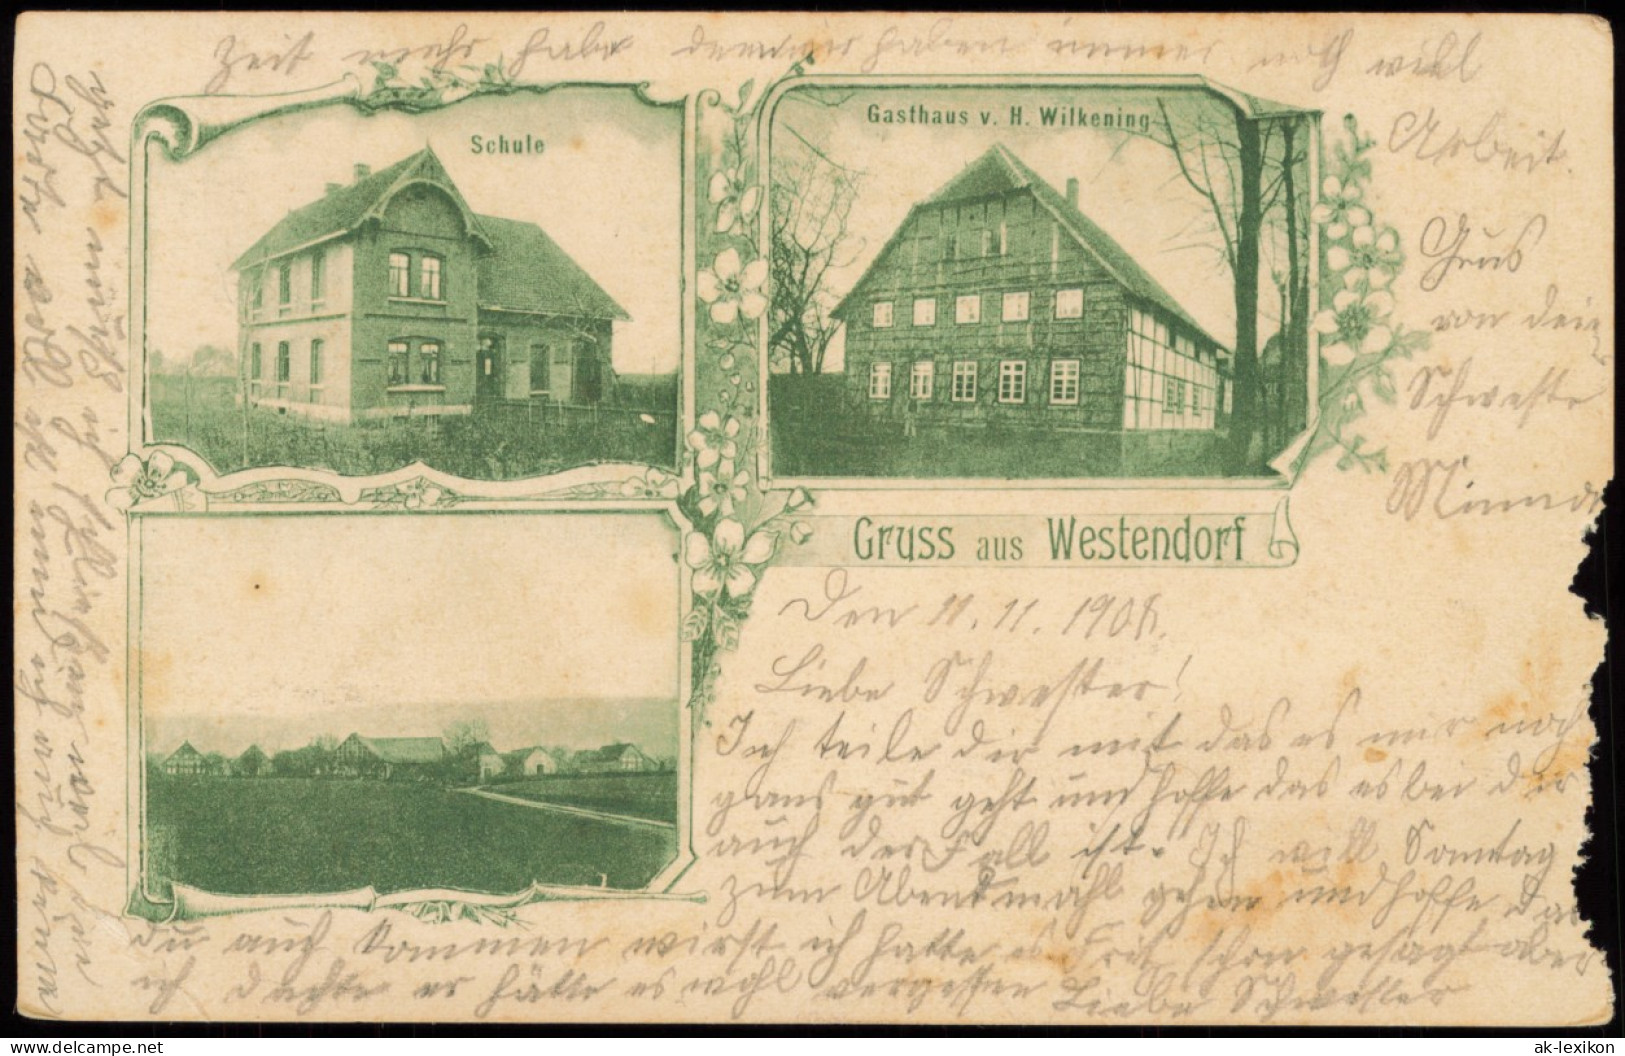 Schule
Gasthaus v. H. Wilkening
Gruss aus Westendorf
Den 11. 11. 1908.
Liebe Schwester!
Ich teile dir mit das es mir noch
gans gut geht und hoffe das es bei dir
auch der Fall ist. Ich will Sonntag
zum Abendmahl gehen und hoffe das
du auch kommen wirst ich hatte es Frit schon gesagt aber
ich dachte er hätte es wohl vergessen Liebe Schwester
ich
Zeit mehr habe denn wir haben immer noch viel
Arbeit.
Grus
von dein
Schwester
Minna
delcampe.net
ak-lexikon